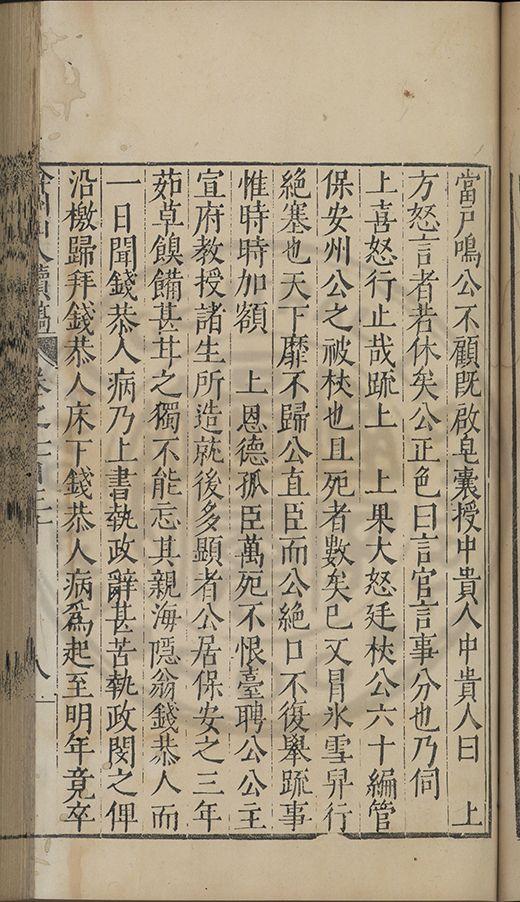 當戶鳴公不顧既啟皂囊授中貴人中貴人曰　上
方怒言者若休矣公正色曰言官言事分也乃伺
上喜怒行止哉䟽上　上果大怒廷杖公六十編管
保安州公之被杖也且死者數矣已又冒氷雪舁行
絶塞也天下靡不歸公直臣而公絶口不復舉䟽事
惟時時加額　上恩德孤臣萬死不恨臺聘公公主
宣府教授諸生所造就後多顯者公居保安之三年
茹草餽餙甚甘之獨不能忘其親海隱翁錢恭人而
一日聞錢恭人病乃上書執政辭甚苦執政閔之俾
沿檄歸拜錢恭人床下錢恭人病為起至明年竟卒
人續稿 卷之一百三十 八